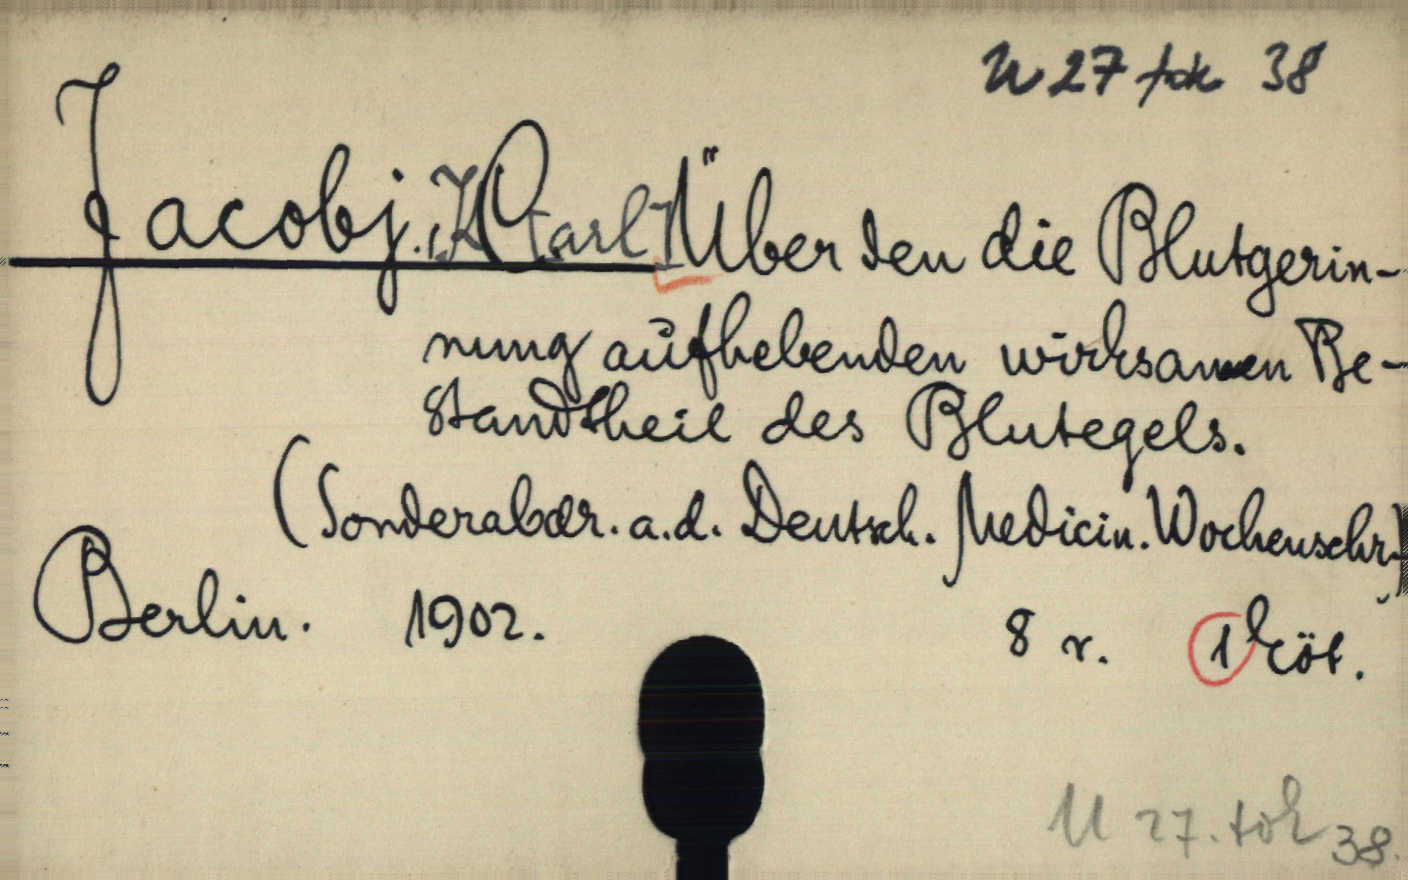 U 27 tok 38
Jacobj. K[arl] Über den die Blutgerin-
nung aufhebenden wirksamen Be-
standtheil des Blutegels.
(Sonderabdr. a. d. Deutsch. Medicin. Wochenschr.)
Berlin. 1902. 8 r. 1 köt.
U 27. tok 38.